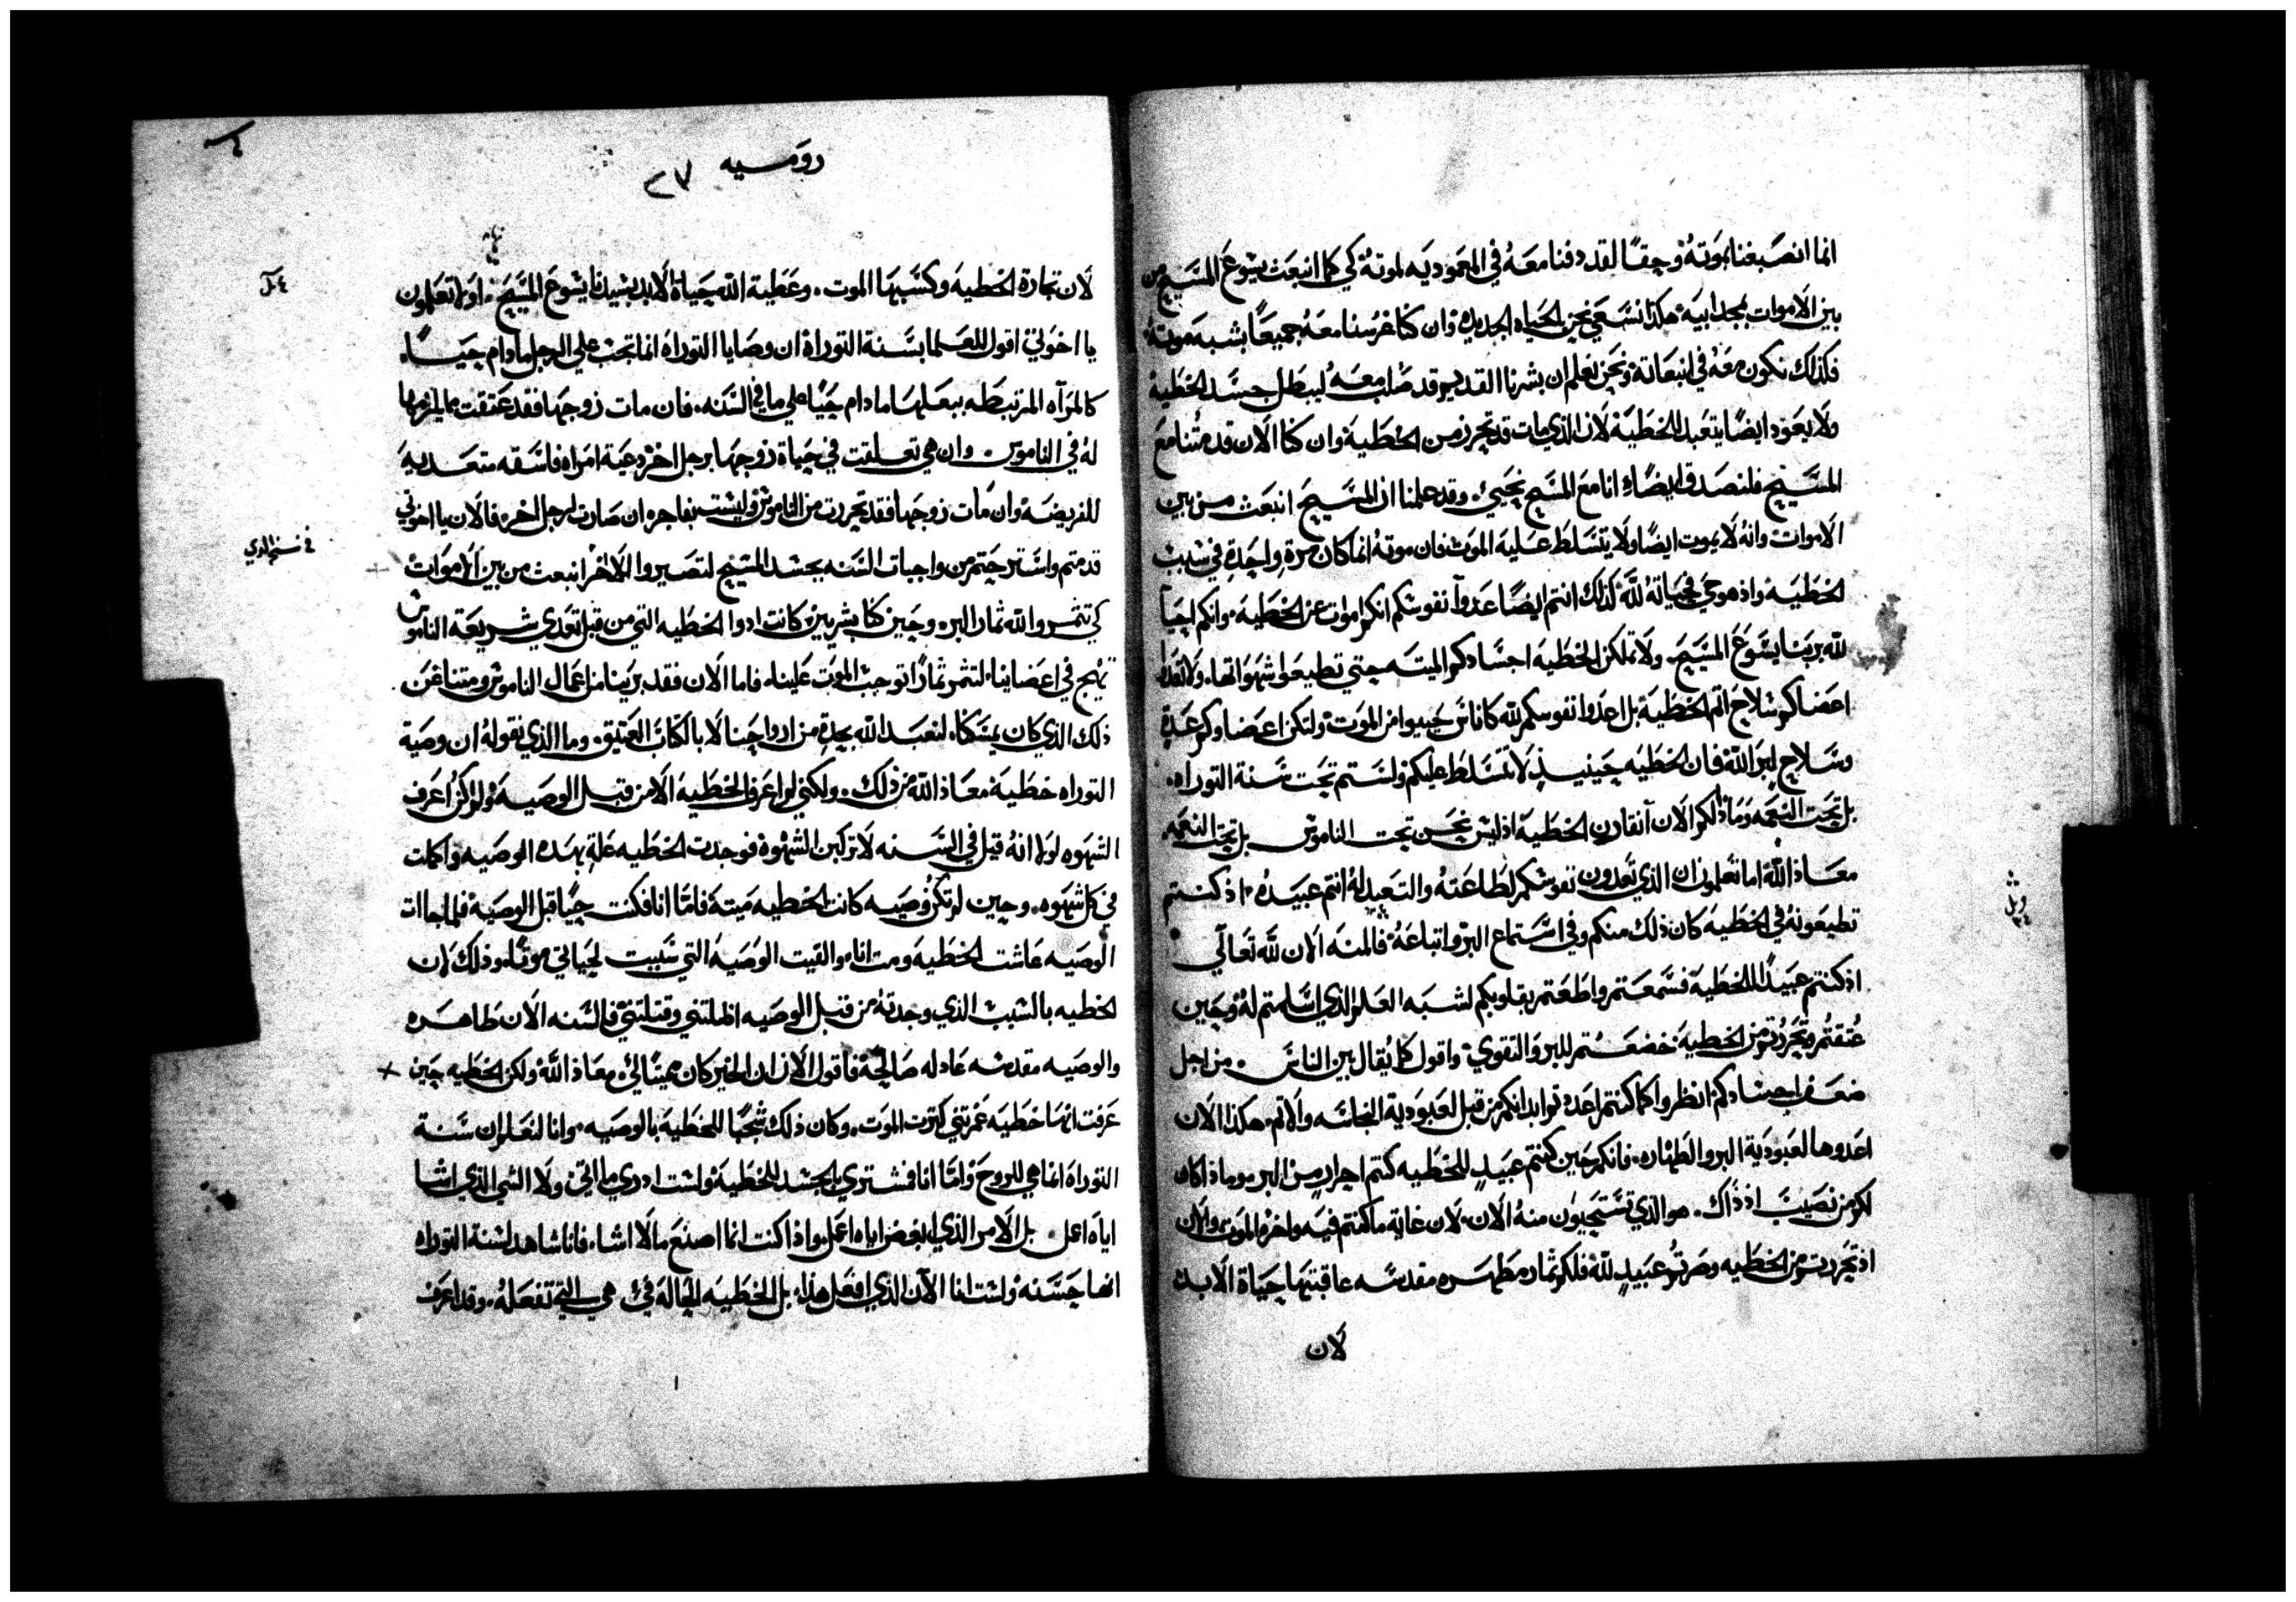 انما انصبغنا بموته وحقا لقد دفنا معه في المعموديه لموته كي كما انبعث يسوع المسيح من
بين الاموات بمجد ابيه هكذا نسعي نحن الحياه الجديده وان كنا غرسنا معه جميعا بشبه موته
فكذلك نكون معه في انبعاثه ونحن نعلم ان بشرنا القديم قد صلب معه ليبطل جسد الخطية
ولا يعود ايضا يتعبد للخطية لان الذي مات قد تحرر من الخطية وان كنا الان قد متنا مع
المسيح فلنصدق ايضا انا مع المسيح نحيي وقد علمنا ان المسيح انبعث من بين
الاموات وانه لا يموت ايضا ولا يتسلط عليه الموت فان موته انما كان مرة واحدة في سبب
الخطيه واذ هو حي فحياته لله كذلك انتم ايضا عدوا نفوسكم انكم اموات عن الخطيه وانكم احيا
لله بربنا يسوع المسيح ولا تملكن الخطيه اجسادكم الميته حتي تطيعوا شهواتها ولا تعدوا
اعضاكم سلاح اثم الخطية بل اعدوا نفوسكم لله كاناس حيوا من الموت ولتكن اعضاوكم عدة
وسلاح لبر الله فان الخطيه حينيذ لا تتسلط عليكم ولستم تحت سنة التوراه
بل تحت النعمه وماذا لكم الان آنقارن الخطية اذ ليس نحن تحت الناموس بل تحت النعمه
معاذ الله اما تعلمون ان الذي تعدون نفوسكم لطاعته والتعبد له انتم عبيده اذ كنتم
تطيعونه في الخطيه كان ذلك منكم وفي استماع البر واتباعه فالمنه الان لله تعالي
اذ كنتم عبيدا للخطية فسمعتم واطعتم بقلوبكم لشبه العلم الذي اسلمتم له وحين
عتقتم وتجردتم من الخطية خضعتم للبر والتقوي واقول كما يقال بين الناس من اجل
ضعف اجسادكم انظروا كما كنتم اعددتم ابدانكم من قبل لعبودية النجاسه والاثم هكذا الان
اعدوها لعبودية البر والطهاره فانكم حين كنتم عبيد للخطيه كنتم احرار من البر وماذا كان
لكم من نصيب اذ ذاك هو الذي تستحيون منه الان لان غاية ما كنتم فيه واخره الموت والان
اذ تجردتم من الخطيه وصرتم عبيد لله فلكم ثمار مطهره مقدسه عاقبتها حياة الابد
لان
روميه ٢٧
لان تجارة الخطيه وكسبها الموت وعطية الله حياة الابد بسيدنا يسوع المسيح اولا تعلمون
يا اخوتي اقول للعلما بسنة التوراة ان وصايا التوراه انما تجب علي الرجل ما دام حيا
كالمرآه المرتبطه ببعلها ما دام حيا علي ما في السنه فان مات زوجها فقد عتقت مما يلزمها
له في الناموس وان هي تعلقت في حياة زوجها برجل اخر دعية امراه فاسقه متعديه
للفريضه وان مات زوجها فقد تحررت من الناموس وليست بفاجره ان صارت لرجل اخر فالان يا اخوتي
قد متم واسترحتم من واجبات السنه بجسد المسيح لتصيروا لاخر انبعث من بين الاموات
في نسخه الذي
كي تثمروا لله ثمار البر وحين كنا بشريين كانت ادوا الخطيه التي من قبل تعدي شريعة الناموس
تهيج في اعضاينا لتثمر ثمارا توجب الموت علينا فاما الان فقد برينا من اعمال الناموس ومتنا عن
ذلك الذي كان يمسكنا لنعبد الله بجدة من ارواحنا لا بالكتاب العتيق وما الذي نقوله ان وصية
التوراه خطية معاذ الله من ذلك ولكني لم اعرف الخطية الا من قبل الوصيه ولم اكن اعرف
الشهوه لولا انه قيل في السنه لا تركبن الشهوة فوجدت الخطيه علة بهذه الوصيه واكملت
في كل شهوه وحين لم تكن وصيه كانت الخطيه ميتة فاما انا فكنت حيا قبل الوصية فلما جاات
الوصيه عاشت الخطيه ومت انا والفيت الوصيه التي سببت لحياتي موتا وذلك لان
الخطيه بالسبب الذي وجدته من قبل الوصيه اظلتني وقتلتني فالسنه الان طاهره
والوصيه مقدسه عادله صالحة فاقول الان ان الخير كان مميتا لي معاذ الله ولكن الخطيه حين
عرفت انها خطيه غمرتني كثرت الموت وكان ذلك شجبا للخطية بالوصيه وانا لنعلم ان سنة
التوراه انما هي للروح واما انا فمشتري بالجسد للخطية ولست ادري ما اتي ولا الشي الذي اشا
اياه اعمل بل الامر الذي ابغض اياه اعمل واذا كنت انما اصنع ما لا اشا فانا شاهد لسنة التوراه
انها حسنه ولست انا الان الذي افعل هذا بل الخطيه الحالة في هي التي تفعله وقد اعرف